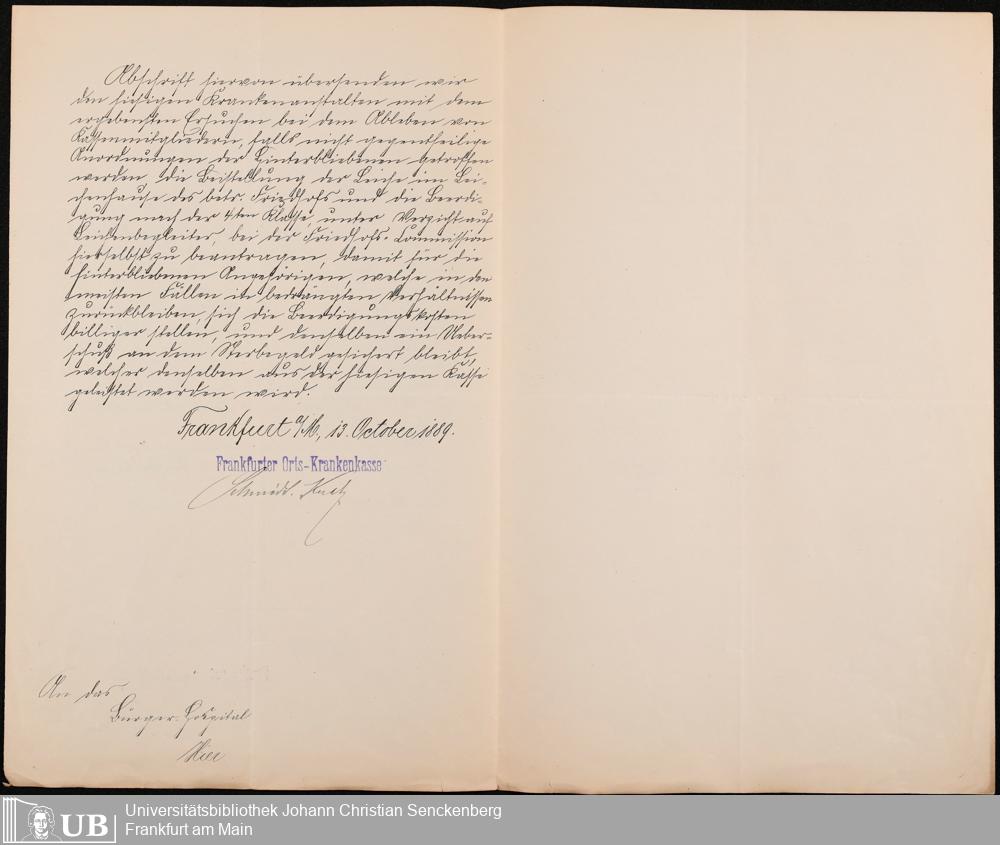 Abschrift hiervon übersenden wir
den hiesigen Krankenanstalten mit dem
ergebensten Ersuchen bei dem Ableben von
Kassenmitgliedern, falls nicht gegentheilige
Anordnungen der Hinterbliebenen getroffen
werden, die Beistellung der Leiche im Lei-
chenhause des betr. Friedhofs und die Beerdi-
gung nach der 4ten Klasse, unter Verzicht auf
Leichenbegleiter, bei der Friedhofs-Commission
hierselbst zu beantragen, damit für die
hinterbliebenen Angehörigen, welche in den
meisten Fällen in bedrängten Verhältnissen
zurückbleiben, sich die Beerdigungskosten
billiger stellen, und denselben ein Ueber-
schuß an dem Sterbegeld gesichert bleibt,
welcher denselben aus der hiesigen Kasse
geleistet werden wird.
Frankfurt a/M., 13. October 1889.
Frankfurter Orts-Krankenkasse
Schmidt.
An das
Bürger-Hospital
Hier
UB
Universitätsbibliothek Johann Christian Senckenberg
Frankfurt am Main